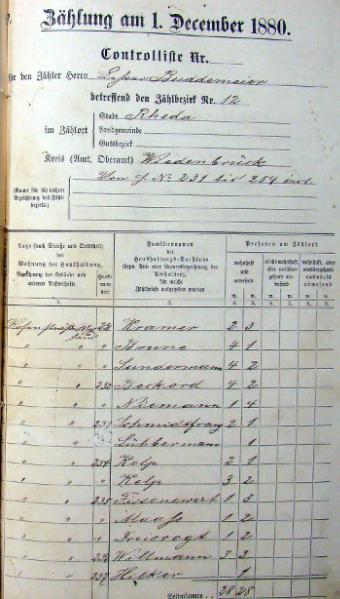 Zählung am 1. December 1880.
Controlliste Nr.
für den Zähler Herrn Lehrer Buddemeier
betreffend den Zählbezirk Nr. 12
im Zählort
Stadt Rheda
Landgemeinde
Gutsbezirk
Kreis (Amt, Oberamt) Wiedenbrück
Nr. 231 bis 254 incl.
(Raum für die nähere Bezeichnung des Zählbezirks.)
Lage (nach Straße und Ortstheil) der Wohnung der Haushaltung, Bezeichnung der Gebäude und anderen Aufenthalte
Hausnummer
Familiennamen der Haushaltungs-Vorstände
für welche Zählbriefe ausgegeben wurden
Personen am Zählort
wohnhaft und anwesend
nicht wohnhaft, aber vorübergehend anwesend
wohnhaft, aber vorübergehend abwesend
m. w. m. w. m. w.
1. 2. 3. 4. 5. 6. 7. 8.
Kramer 2 3
" " Brune 4 1
" " Sundermann 4 2
" " Beckord 4 2
" " Niemann 1 4
" " Schmidtfranz 2 1
" " Lübbermann 1
" " 234 Kolp 2 1
" " Kolp 3 2
" " 235 Füsenewert 1 3
" " Maaß 1 2
" " Dreisvogt 1 2
" " 236 Willmann 3 3
" " 237 Hilker 1
Seitensumme 28 28